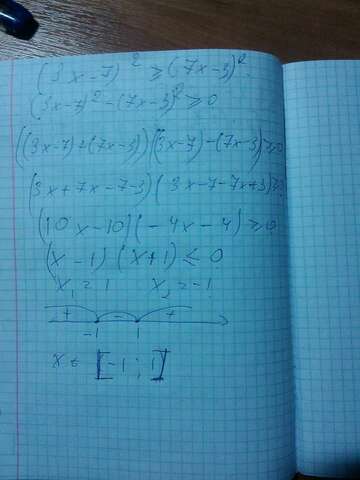 (3x-7)² ≥ (7x-3)²
(3x-7)² - (7x-3)² ≥ 0
((3x-7)+(7x-3))((3x-7)-(7x-3)) ≥ 0
(3x+7x-7-3)(3x-7-7x+3) ≥ 0
(10x-10)(-4x-4) ≥ 0
(x-1)(x+1) ≤ 0
x₁ = 1 x₂ = -1
+ - +
-1 1
x ∈ [-1; 1]